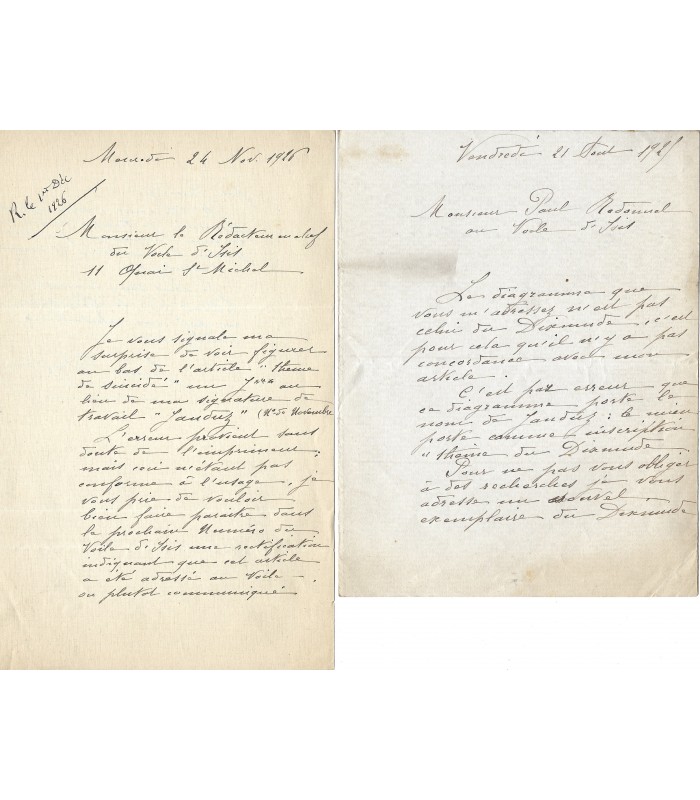 Mercredi 24 Nov. 1926
R. le 1er Déc
1926
Monsieur le Rédacteur en chef
du Voile d'Isis
11 Quai St Michel
Je vous signale ma
surprise de voir figurer
au bas de l'article "thème
de suicidé" un J*** au
lieu de ma signature de
travail "Janduz" (No de Novembre
L'erreur provient sans
doute de l'imprimeur;
mais ceci n'étant pas
conforme à l'usage, je
vous prie de vouloir
bien faire paraitre dans
le prochain Numéro du
Voile d'Isis une rectification
indiquant que cet article
a été adressé au Voile –
ou plutot communiqué
Vendredi 21 Aout 1925
Monsieur Paul Redonnel
au Voile d'Isis
Le diagramme que
vous m'adressez n'est pas
celui du Dixmude, c'est
pour cela qu'il n'y a pas
concordance avec mon
article.
C'est par erreur que
ce diagramme porte le
nom de Janduz: le mien
porte comme inscription
"thème du Dixmude
Pour ne pas vous obliger
à des recherches je vous
adresse un nouvel
exemplaire du Dixmude